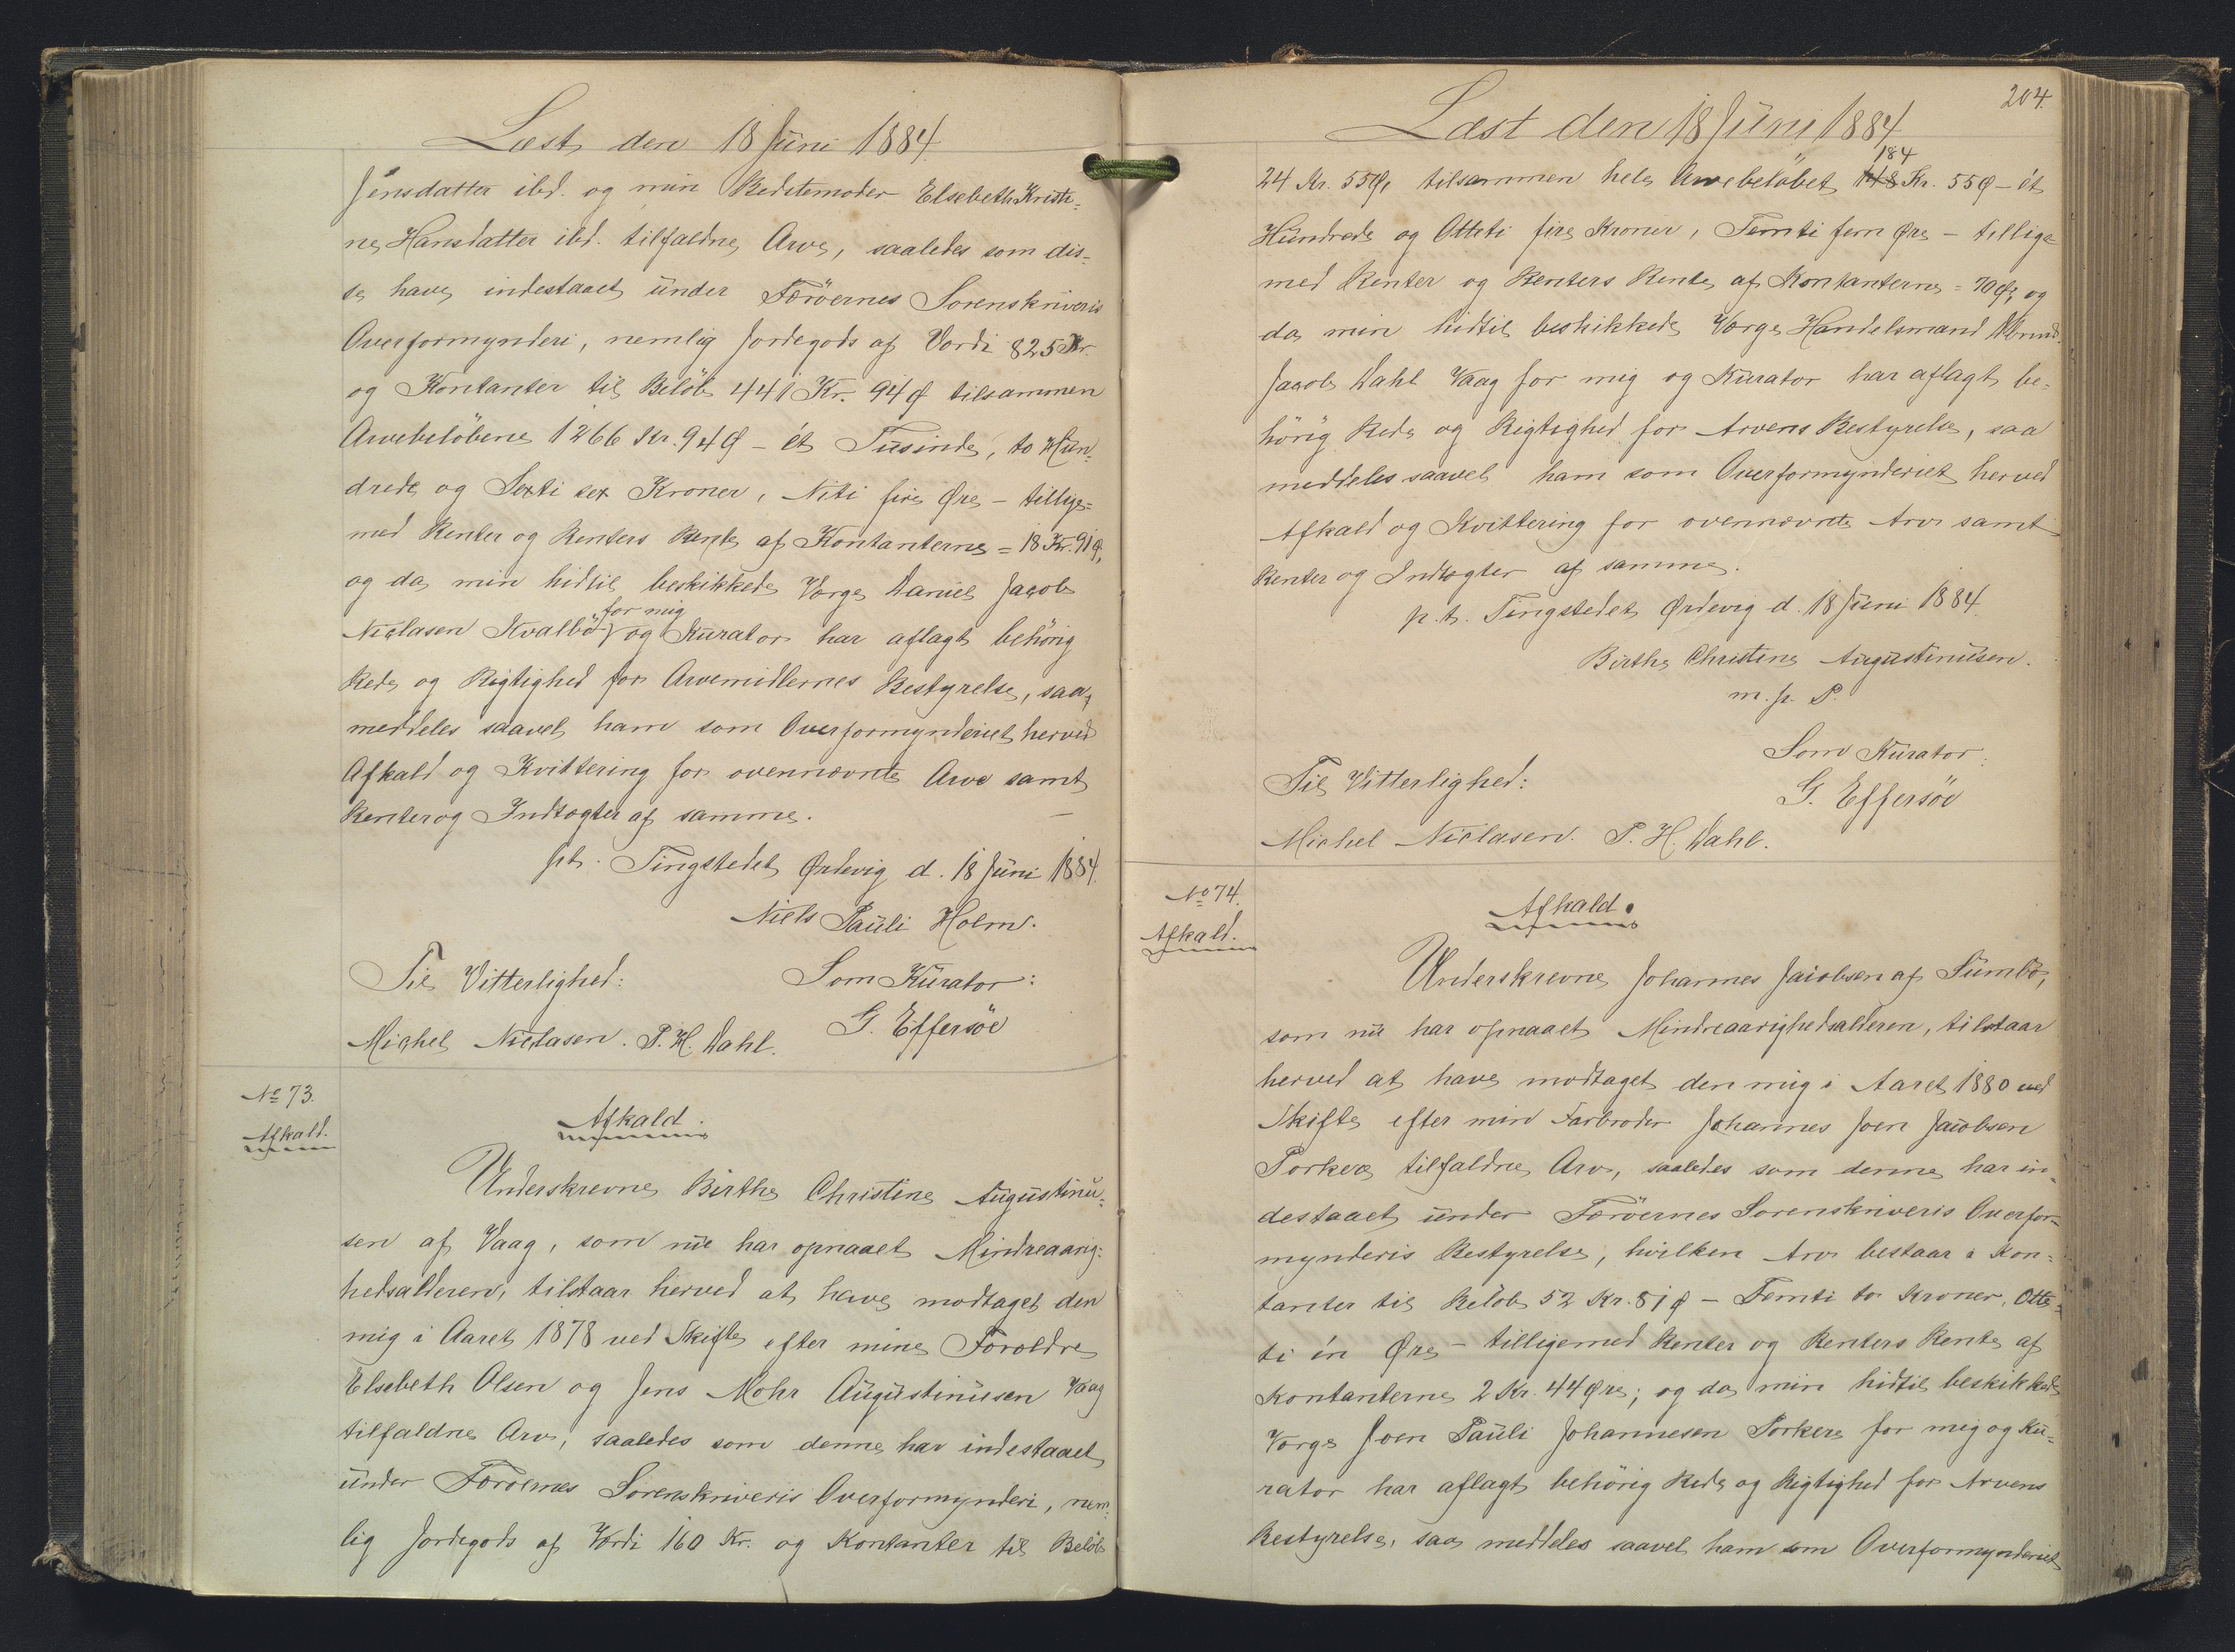 Læst den 18 Juni 1884.
Jensdatter ibd. og min Bedstemoder Elsebeth Kristi-
ne Hansdatter ibd. tilfaldne Arve, saaledes som dis-
se have indestaaet under Færöernes Sorenskriveris
Overformynderi, nemlig Jordegods af Værdi 825 Kr.
og Kontanter til Belöb 441 Kr. 94 Ø tilsammen
Arvebelöbene 1266 Kr. 94 Ø - ét Tusinde, to Hun-
drede og Sexti sex Kroner, Niti fire Øre - tillige-
med Renter og Renters Rente af Kontanterne = 18 Kr. 91 Ø,
og da min hidtil beskikkede Værge Daniel Jacob
for mig
Niclasen Kvalbö og Kurator har aflagt behörig
Rede og Rigtighed for Arvemidlernes Bestyrelse, saa
meddeles saavel ham som Overformynderiet herved
Afkald og Kvittering for ovennævnte Arve samt
Renter og Indtægter af samme.
p.t. Tingstedet Ørdevig d. 18 Juni 1884.
Niels Pauli Holm.
Til Vitterlighed: Som Kurator:
Michel Niclasen. P. H. Dahl. G. Effersöe
No 73.
Afkald.
Afkald.
Underskrevne Birthe Christine Augustinu-
sen af Vaag, som nu har opnaaet Mindreaarig-
hedsalderen, tilstaar herved at have modtaget den
mig i Aaret 1878 ved Skifte efter mine Forældre
Elsebeth Olsen og Jens Mohr Augustinusen Vaag
tilfaldne Arv, saaledes som denne har indestaaet
under Færöernes Sorenskriveris Overformynderi, nem-
lig Jordegods af Værdi 160 Kr. og Kontanter til Belöb
204.
Læst den 18 Juni 1884
184
24 Kr. 55 Ø, tilsammen hele Arvebelöbet 148 Kr. 55 Ø - ét
Hundrede og Otteti fire Kroner, Femti fem Øre - tillige
med Renter og Renters Rente af Kontanterne = 70 Ø, og
da min hidtil beskikkede Værge Handelsmand
Jacob Dahl Vaag for mig og Kurator har aflagt be-
hörig Rede og Rigtighed for Arvens Bestyrelse, saa
meddeles saavel ham som Overformynderiet herved
Afkald og Kvittering for ovennævnte Arv samt
Renter og Indtægter af samme.
p.t. Tingstedet Ørdevig d. 18 Juni 1884.
Birthe Christine Augustinusen.
m. f. P.
Som Kurator:
Til Vitterlighed: G. Effersöe
Michel Niclasen. P. H. Dahl.
No 74.
Afkald.
Afkald.
Underskrevne Johannes Jacobsen af Sumbö,
som nu har opnaaet Mindreaarighedsalderen, tilstaar
herved at have modtaget den mig i Aaret 1880 ved
Skifte efter min Farbroder Johannes Joen Jacobsen
Porkere tilfaldne Arv, saaledes som denne har in-
destaaet under Færöernes Sorenskriveris Overfor-
mynderis Bestyrelse, hvilken Arv bestaar i Kon-
tanter til Belöb 52 Kr. 81 Ø - Femti to Kroner, Otte-
ti én Øre - tilligemed Renter og Renters Rente af
Kontanterne 2 Kr. 44 Øre; og da min hidtil beskikkede
Værge Joen Pauli Johannesen Porkere for mig og Ku-
rator har aflagt behörig Rede og Rigtighed for Arvens
Bestyrelse, saa meddeles saavel ham som Overformynderiet